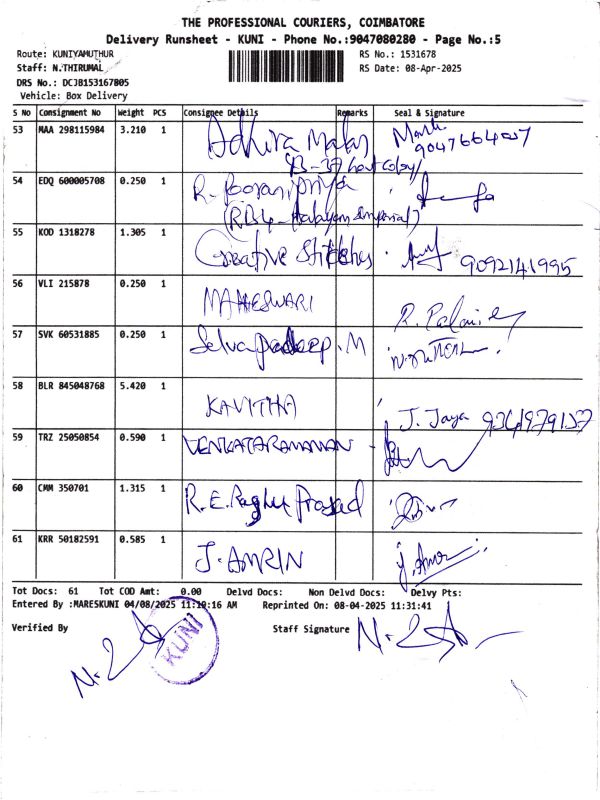 THE PROFESSIONAL COURIERS, COIMBATORE
Delivery Runsheet - KUNI - Phone No.:9047080280 - Page No.:5
Route: KUNIYAMUTHUR RS No.: 1531678
Staff: N.THIRUMAL RS Date: 08-Apr-2025
DRS No.: DCJB153167805
Vehicle: Box Delivery
S No Consignment No Weight PCS Consignee Details Remarks Seal & Signature
53 MAA 298115984 3.210 1 Adhira
54 EDQ 600005708 0.250 1 R. Pooranipriya
55 KOD 1318278 1.305 1 Creative Stitches 9092141995
56 VLI 215878 0.250 1 MAHESWARI
57 SVK 60531885 0.250 1 Selva pradeep. M
58 BLR 845048768 5.420 1 KAVITHA J. Jaya
59 TRZ 25050854 0.590 1 VENKATARAMANAN
60 CMM 350701 1.315 1 R.E. Raghu Prasad
61 KRR 50182591 0.585 1 J. AMRIN
Tot Docs: 61 Tot COD Amt: 0.00 Delvd Docs: Non Delvd Docs: Delvy Pts:
Entered By :MARESKUNI 04/08/2025 11:19:16 AM Reprinted On: 08-04-2025 11:31:41
Verified By KUNI Staff Signature